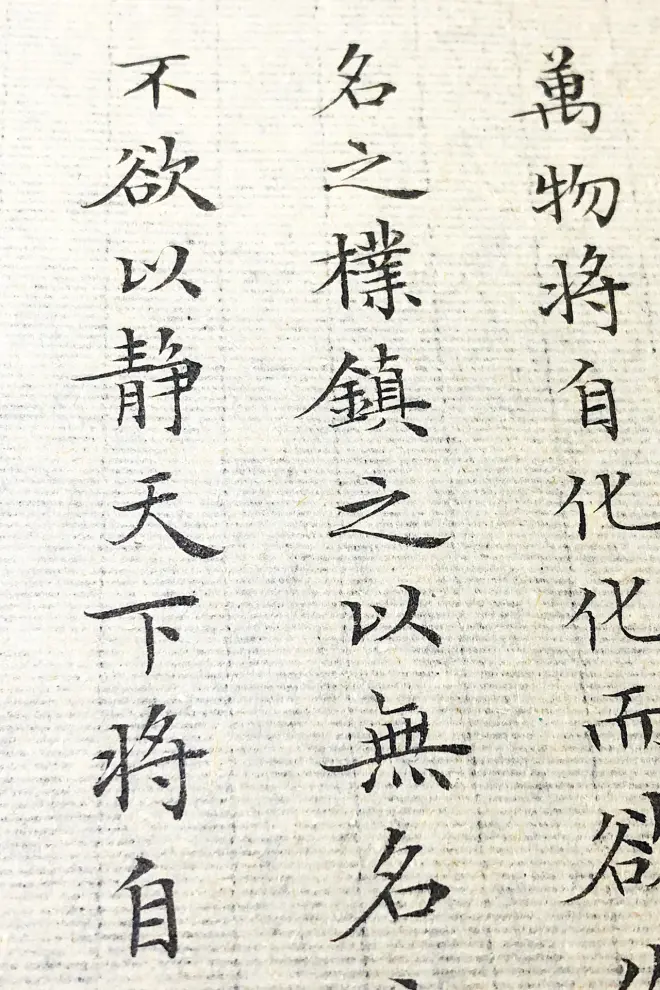 萬物将自化化而欲
名之樸鎮之以無名
不欲以静天下将自